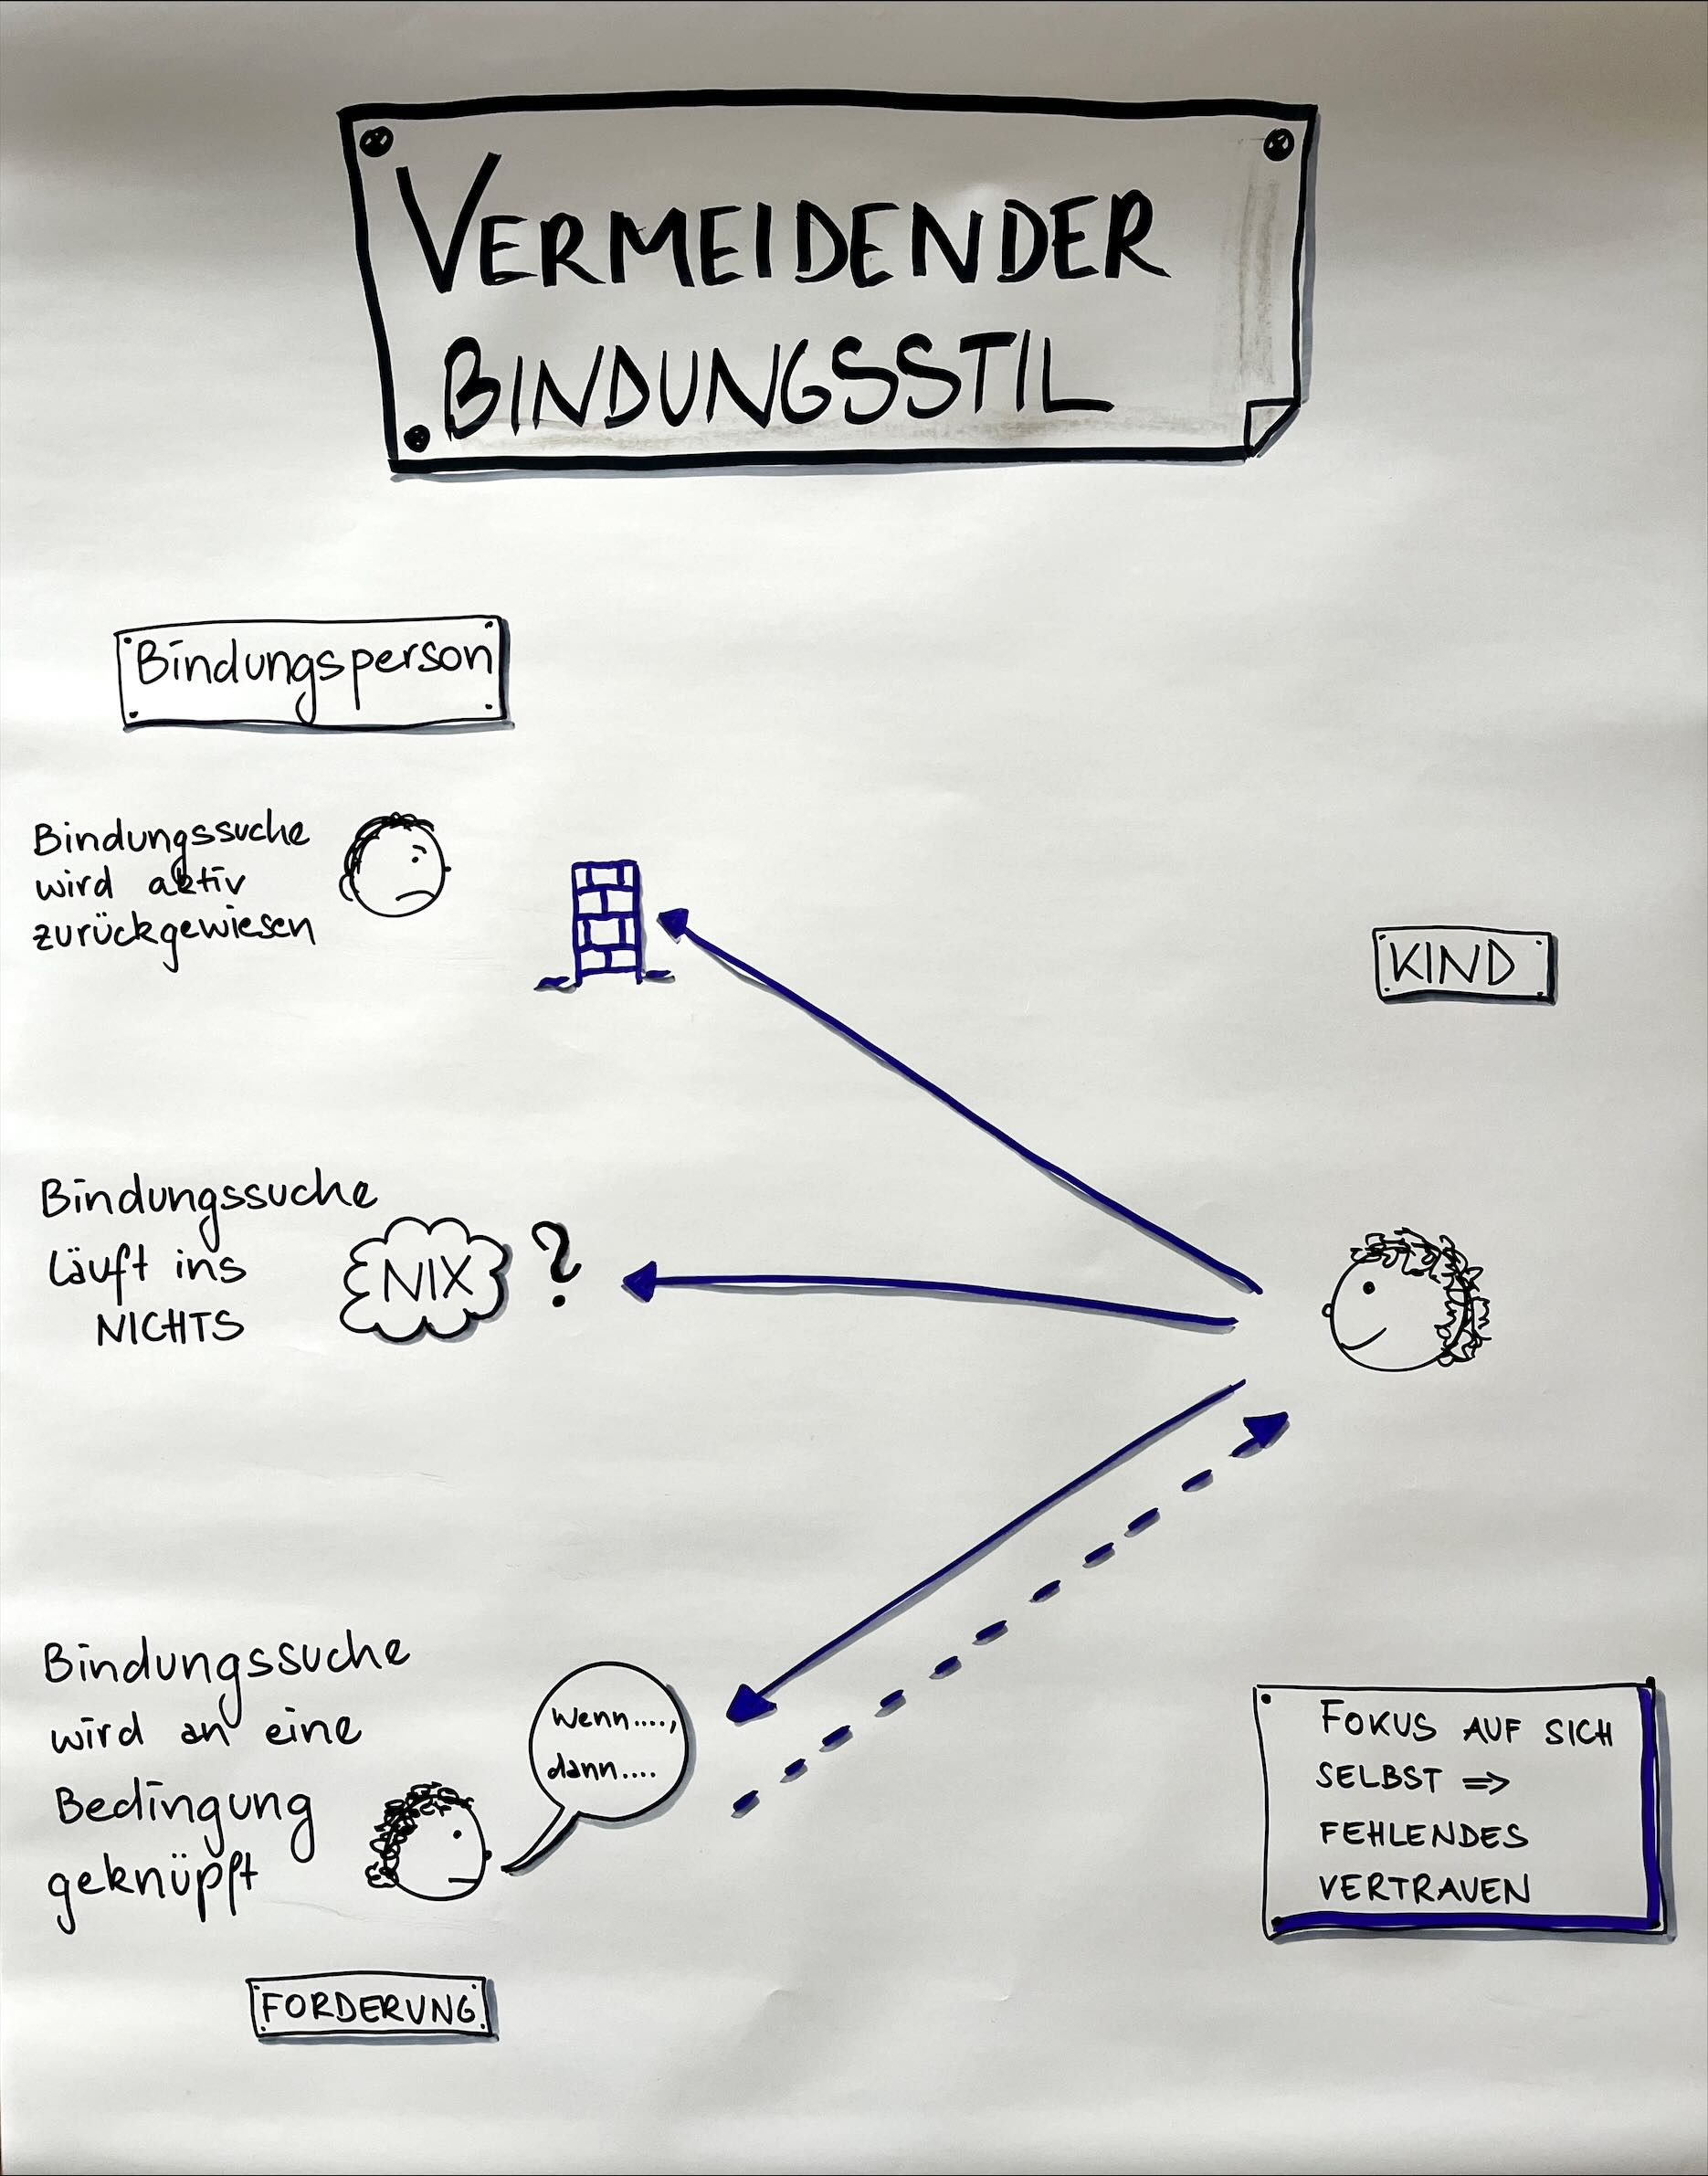 VERMEIDENDER
BINDUNGSSTIL
Bindungsperson
Bindungssuche
wird aktiv
zurückgewiesen
KIND
Bindungssuche
läuft ins
NICHTS
NIX
?
Bindungssuche
wird an eine
Bedingung
geknüpft
Wenn....,
dann....
FORDERUNG
FOKUS AUF SICH
SELBST =>
FEHLENDES
VERTRAUEN